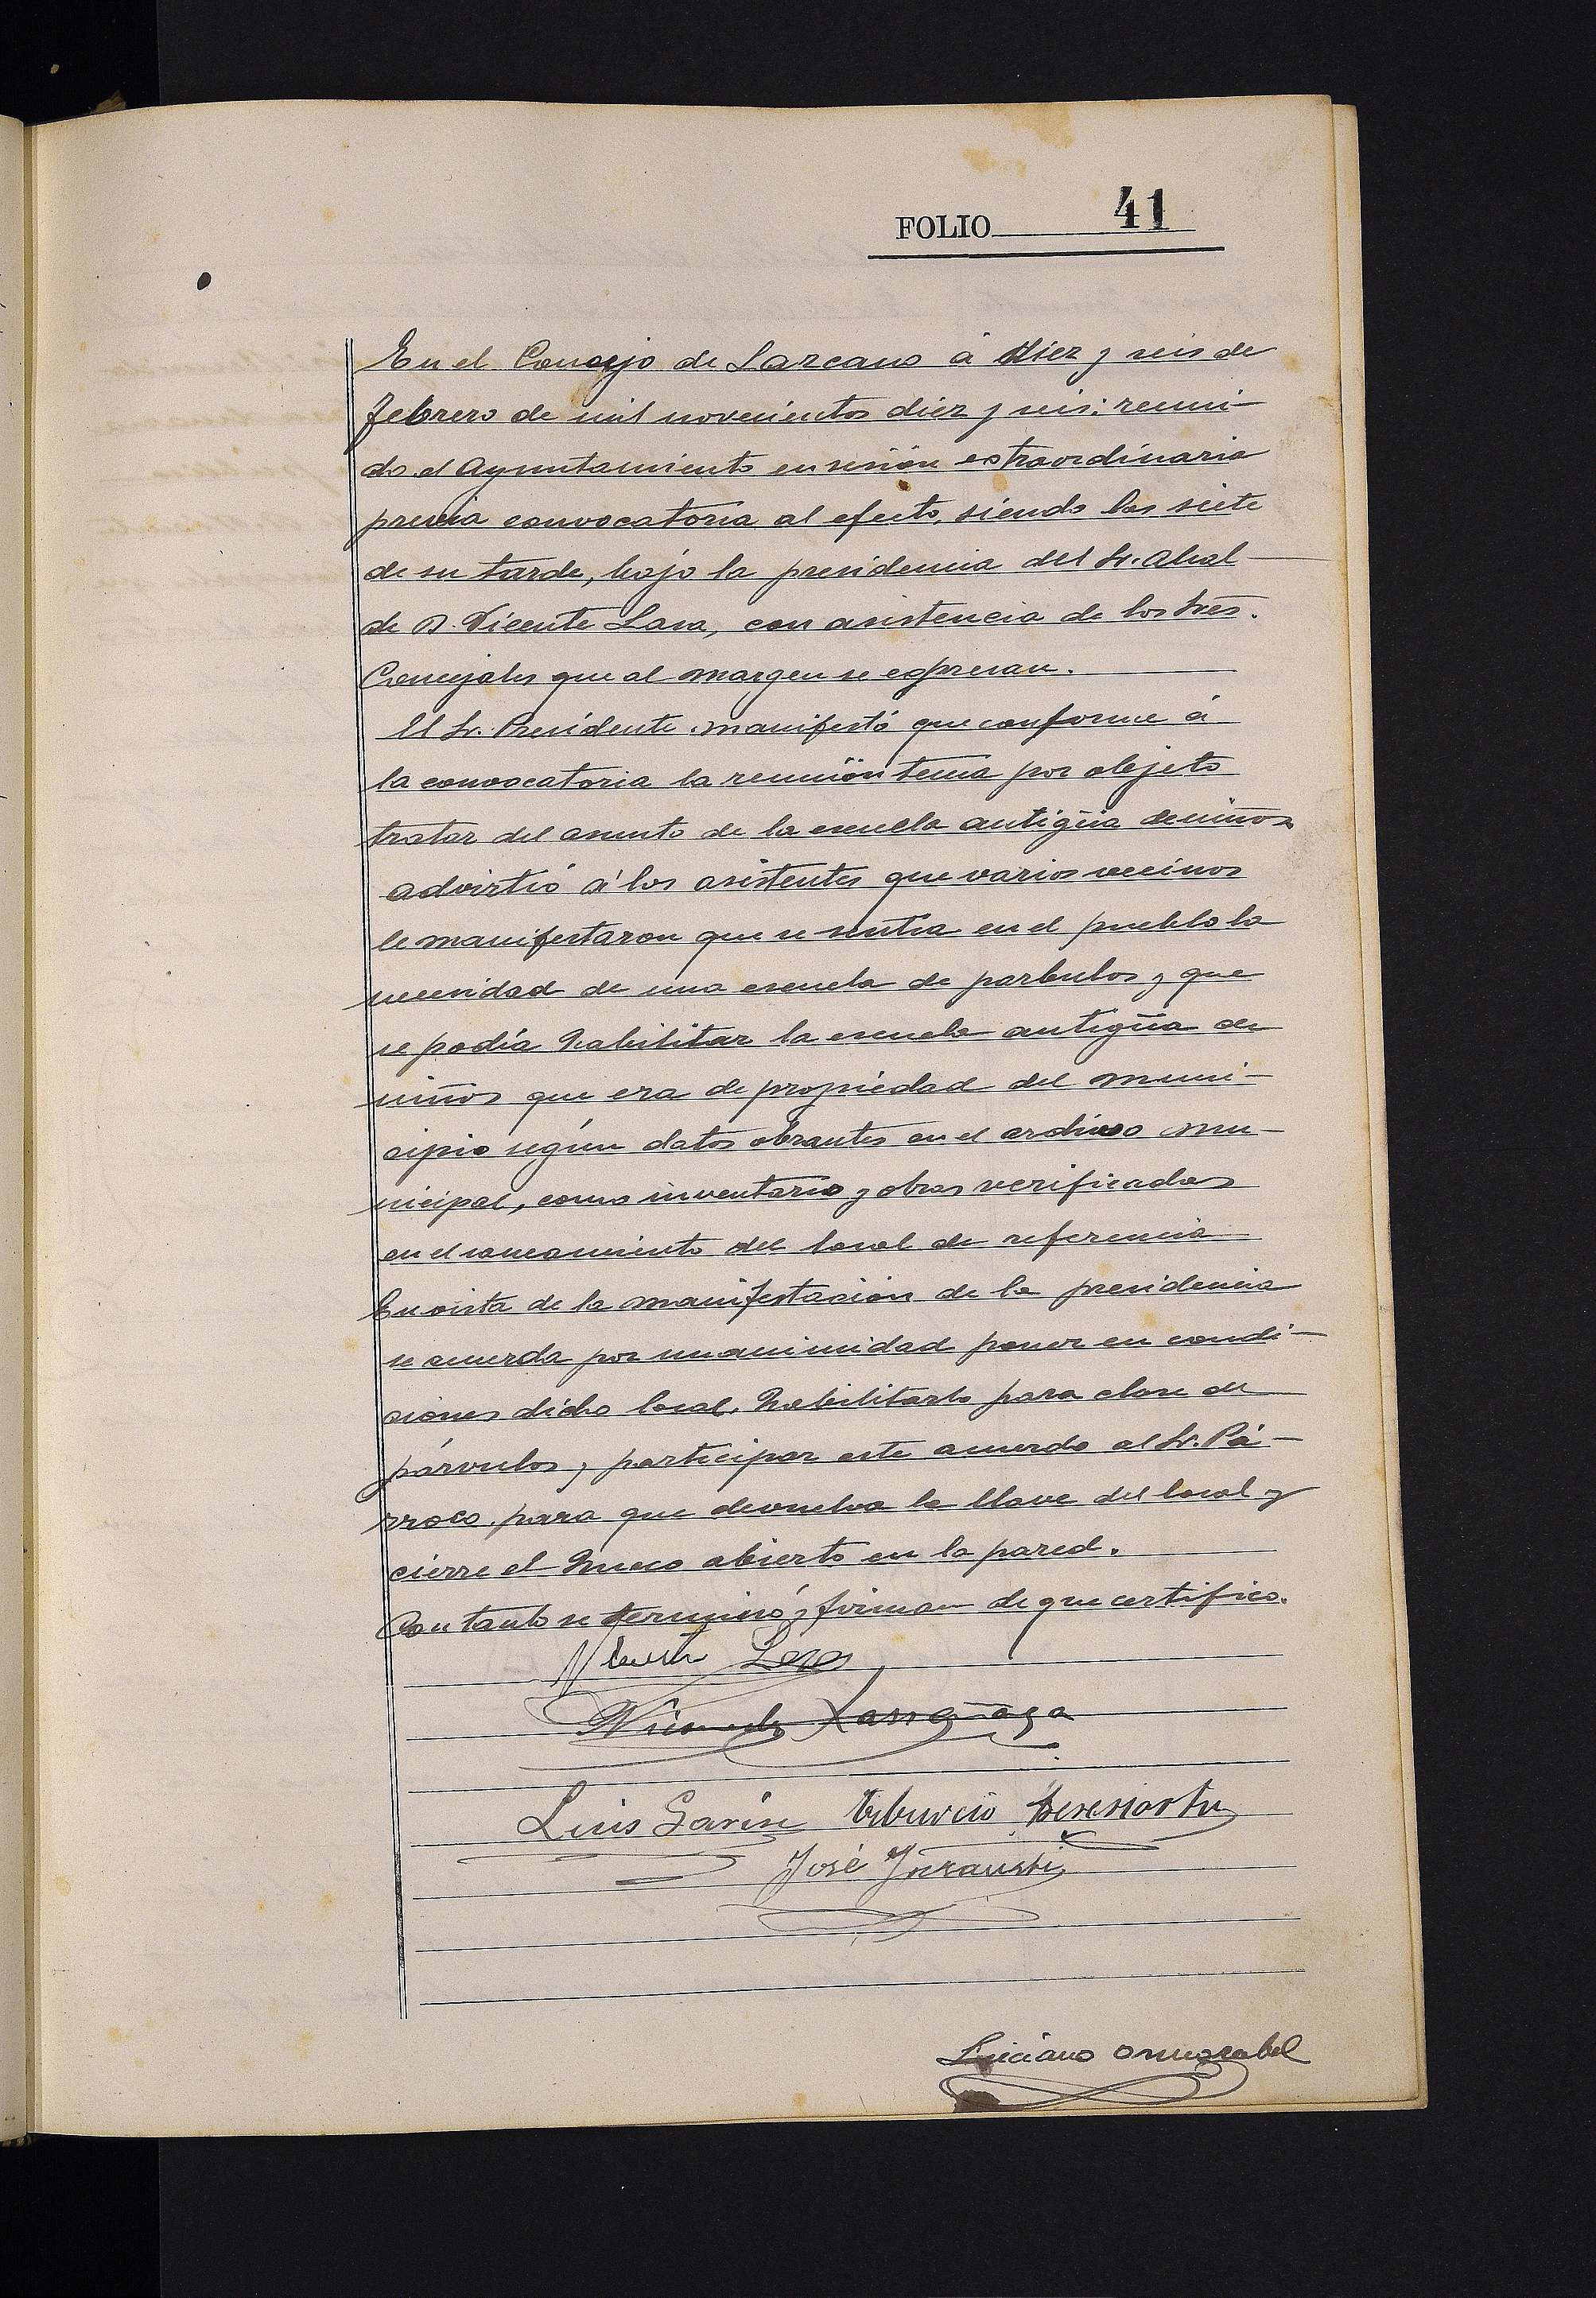 FOLIO 41
En el Concejo de Lazcano á diez y seis de
febrero de mil novecientos diez y seis: reuni-
do el Ayuntamiento en sesión extraordinaria
previa convocatoria al efecto, siendo las siete
de su tarde, bajo la presidencia del Sr. Alcal-
de D. Vicente Lasa, con asistencia de los Sres.
Concejales que al margen se expresan.
El Sr. Presidente manifestó que conforme á
la convocatoria la reunión tenia por objeto
tratar del asunto de la escuela antigüa de niños
advirtió á los asistentes que varios vecinos
le manifestaron que se sentia en el pueblo la
necesidad de una escuela de parbulos y que
se podía habilitar la escuela antigüa de
niños que era de propiedad del muni-
cipio según datos obrantes en el archivo mu-
nicipal, como inventario y obras verificadas
en el saneamiento del local de referencia
En vista de la manifestación de la presidencia
se acuerda por unanimidad poner en condi-
ciones dicho local, habilitarlo para clase de
párvulos, y participar este acuerdo al Sr. Pá-
rroco para que devuelva la llave del local y
cierre el hueco abierto en la pared.
Con tanto se terminó y firman de que certifico.
Vicente Lasa
Larrañaga
Luis Garin Tiburcio
José Inzausti
Luciano